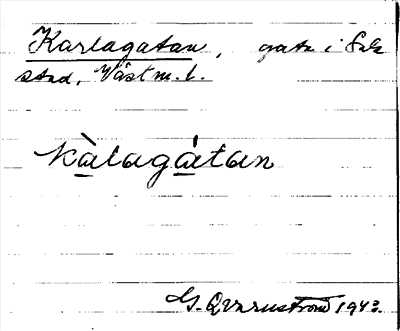 Karlagatan, gata i Sala
stad, Västm. l.
kàlagátan
G. Qvarnström 1943